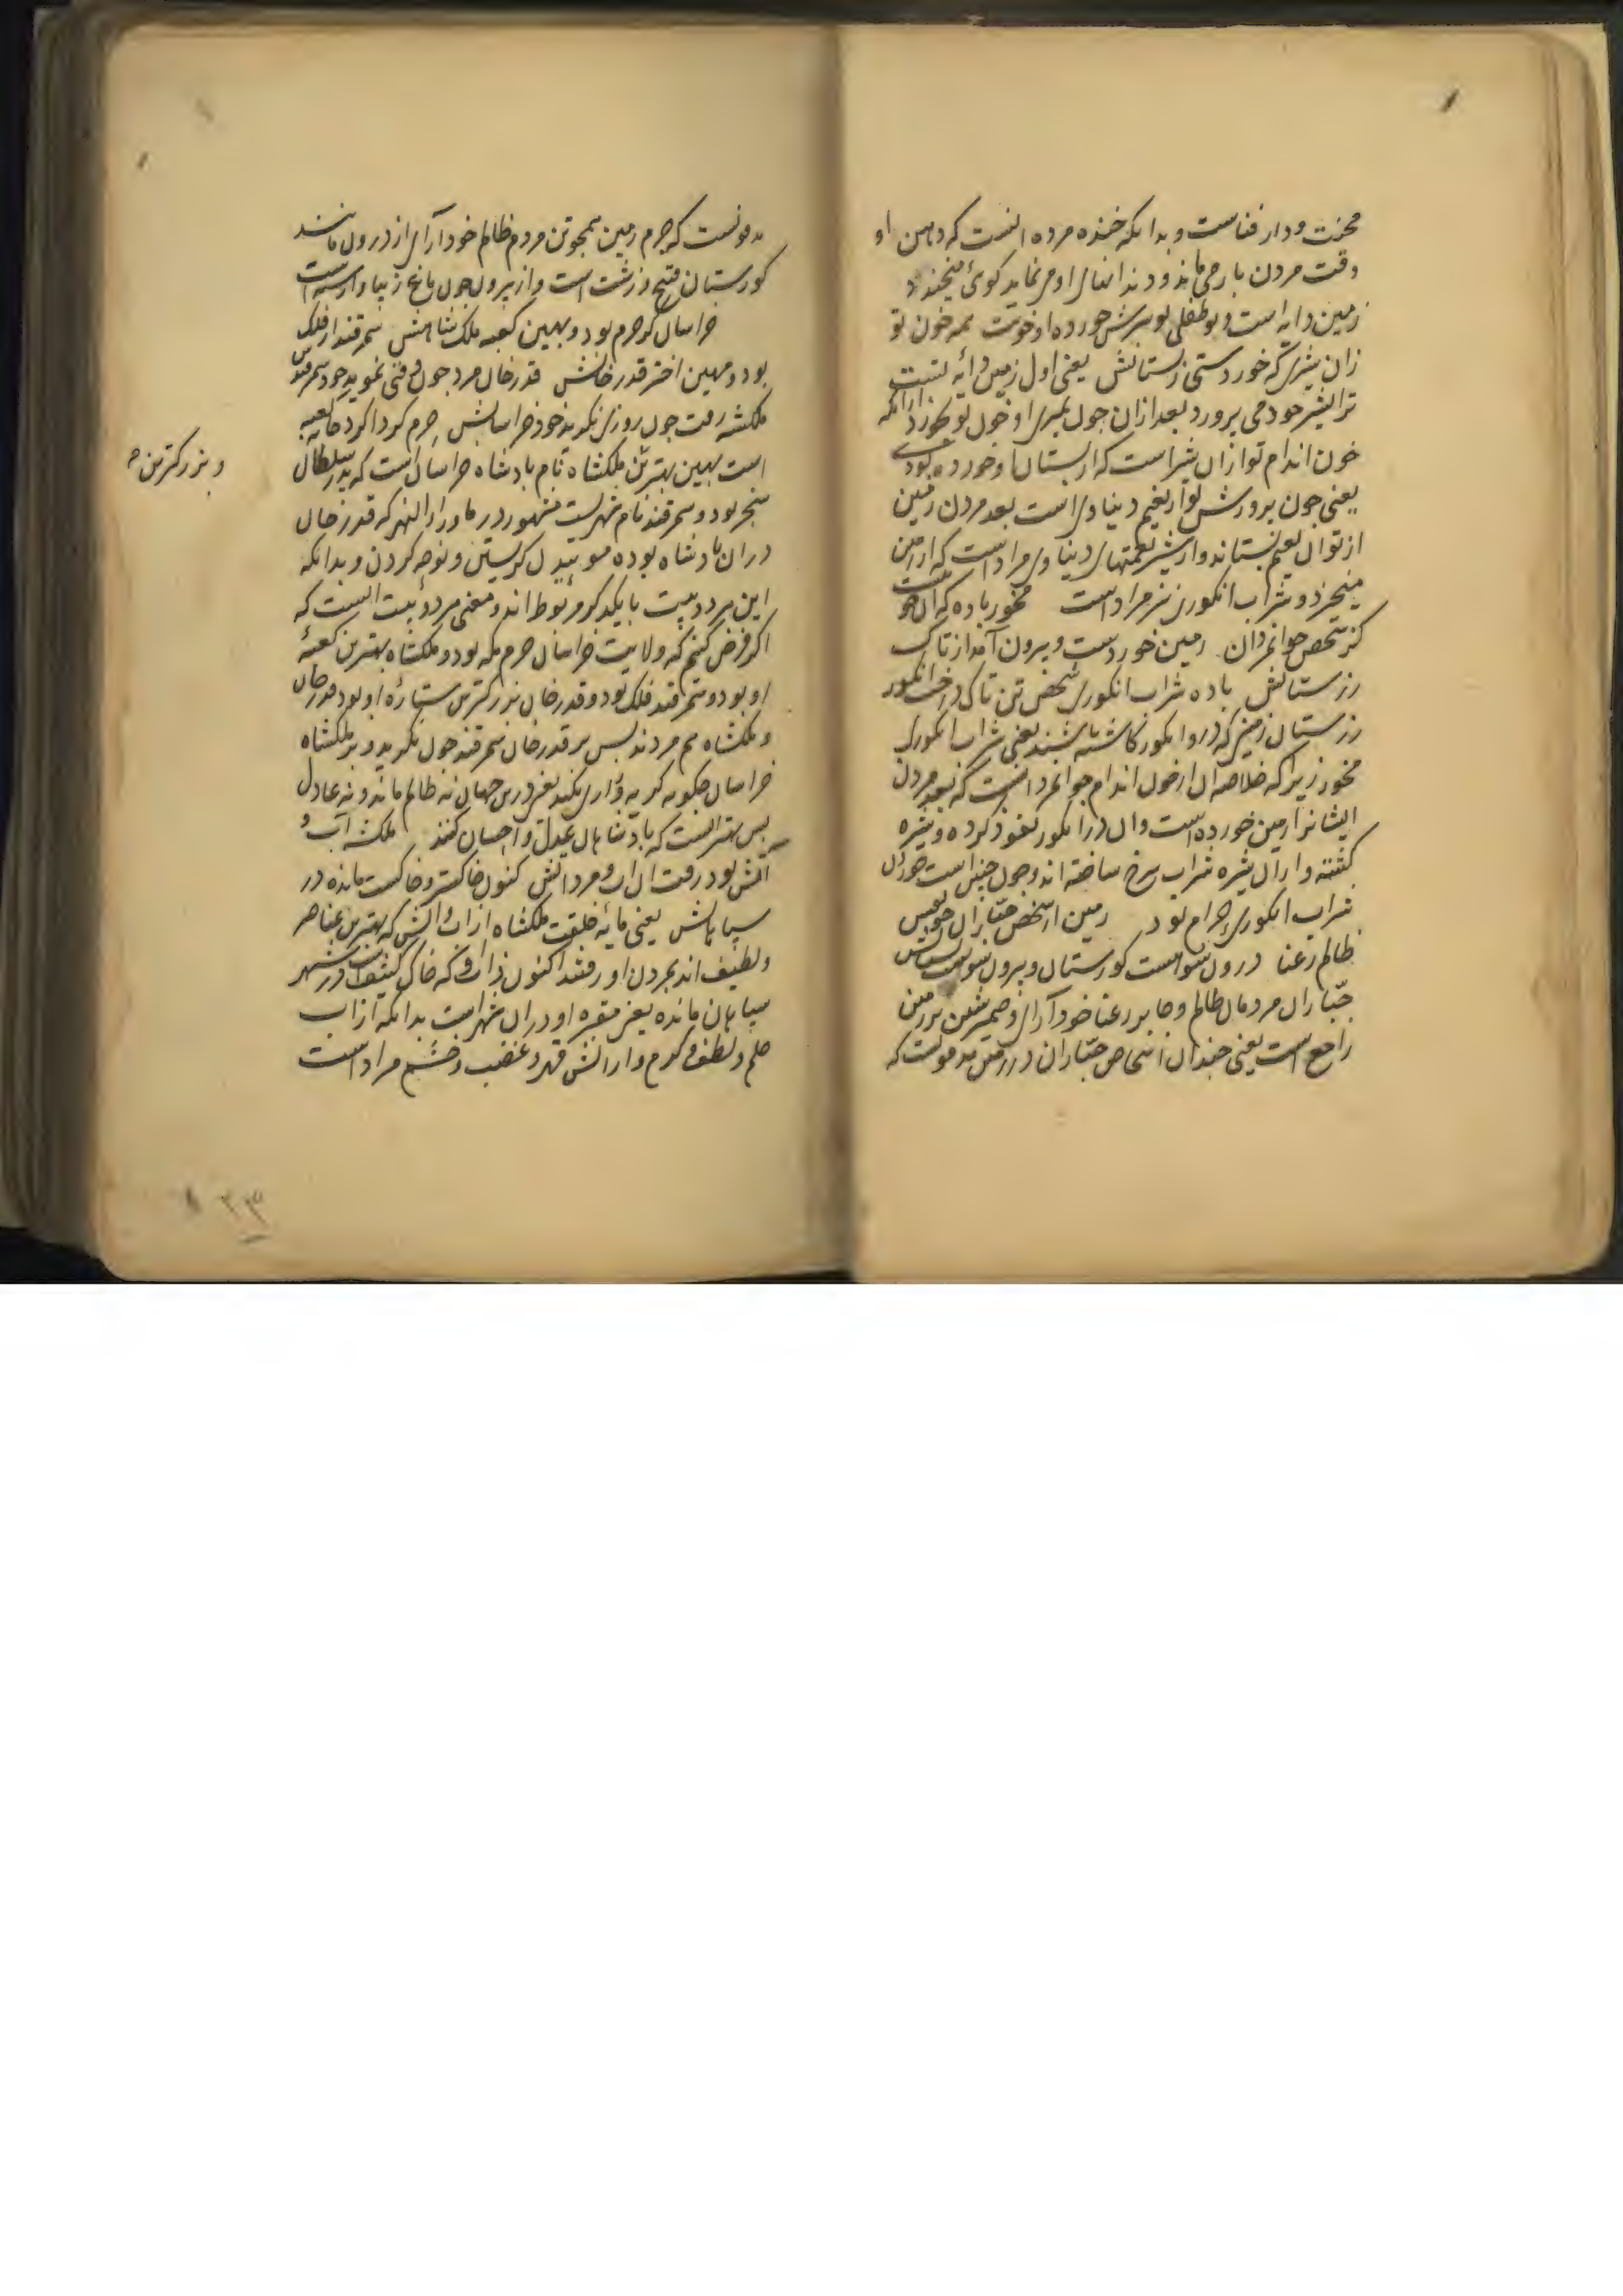 محنت و دار فناست و بدانکه خنده مرده آنست که دهن او
وقت مردن باز می ماند و دندانهای او می نماید کوئ میخندد
زمین دایه است و تو طفلی تو شیرش خورده او خونت همه خون تو
زان شیری که خوردستی ز پستانش یعنی اول زمین دایه تست
ترا بشیر خود می پرورد بعد ازان چون بمیری او خون تو بخورد زیرا که
خون اندام تو ازان شیر است که از پستان او خورده بودی
یعنی چون پرورش تو از نعیم دنیاوی است بعد مردن زمین
از تو آن نعیم بستاند و از شیر نعمتهای دنیاوی مراد است که از زمین
میخیزد و شراب انکوری نیز مراد است مخور باده که آن خونیست
کز شخص جوانمردان زمین خوردست و بیرون آمد از تاک
رزستانش باده شراب انکوری شخص تن تاک درخت انکور
رزستان زمین که درو انکور کاشته باشند یعنی شراب انکوری
مخور زیرا که خلاصه آن از خون اندام جوانمردانست که بعد مردن
ایشانرا زمین خورده است و آن در انکور نفوذ کرده و شیره
کشته و از آن شیره شراب سرخ ساخته اند و چون چنین است خوردن
شراب انکوری حرام بود زمین از شخص جبّاران چو نفس
ظالم رعنا درون سو هست کورستان و بیرون سوست بستانش
جبّاران مردمان ظالم و جابر رعنا خودآرای و ضمیر شین بر زمین
راجع است یعنی چندان اشخاص جبّاران در زمین مدفونست که
مدفونست که جرم زمین همچو تن مردم ظالم خودآرای از درون مانند
کورستان قبیح و زشت است و از بیرون چون باغ زیبا و آراسته است
خراسان کو حرم بود و بهین کعبه ملک شاهش سمرقند ار فلک
بود و مهین اختر قدرخانش قدرخان مرد چون وقتی نموید خود سمرقندش
ملکشه رفت چون روزی نکرید خود خراسانش حرم کرداکرد خانه کعبه
است بهین بهترین ملکشاه نام بادشاه خراسان است که پدر سلطان
سنجر بود و سمرقند نام شهریست مشهور در ماوراء النهر که قدرخان
دران بادشاه بوده موییدن کریستن و نوحه کردن و بدانکه
این هر دو بیت با یکدکر مربوط اند و معنی هر دو بیت اینست که
اکر فرض کنیم که ولایت خراسان حرم مکه بود و ملکشاه بهترین کعبهٔ
او بود و سمرقند فلک بود و قدرخان بزرکترین ستارهٔ او بود قدرخان
و ملکشاه هم مردند پس بر قدرخان سمرقند چون نکرید و بر ملکشاه
خراسان چکونه کریه و زاری نکند یعنی درین جهان نه ظالم ماند و نه عادل
پس بهتر اینست که بادشاهان عدل و احسان کنند ملکشه آب و
آتش بود رفت آن آب و مرد آتش کنون خاکستر و خاکست مانده در
سپاهانش یعنی مایهٔ خلقت ملکشاه از آب و آتش که بهترین عناصر
و لطیف اند بمردن او رفتند اکنون ذات او که خاک کثیف است در شهر
سپاهان مانده یعنی مقبره او دران شهر است بدانکه از آب
حلم و لطف و کرم و از آتش قهر و غضب و خشم مراد است
و بزرکترین
۲۳